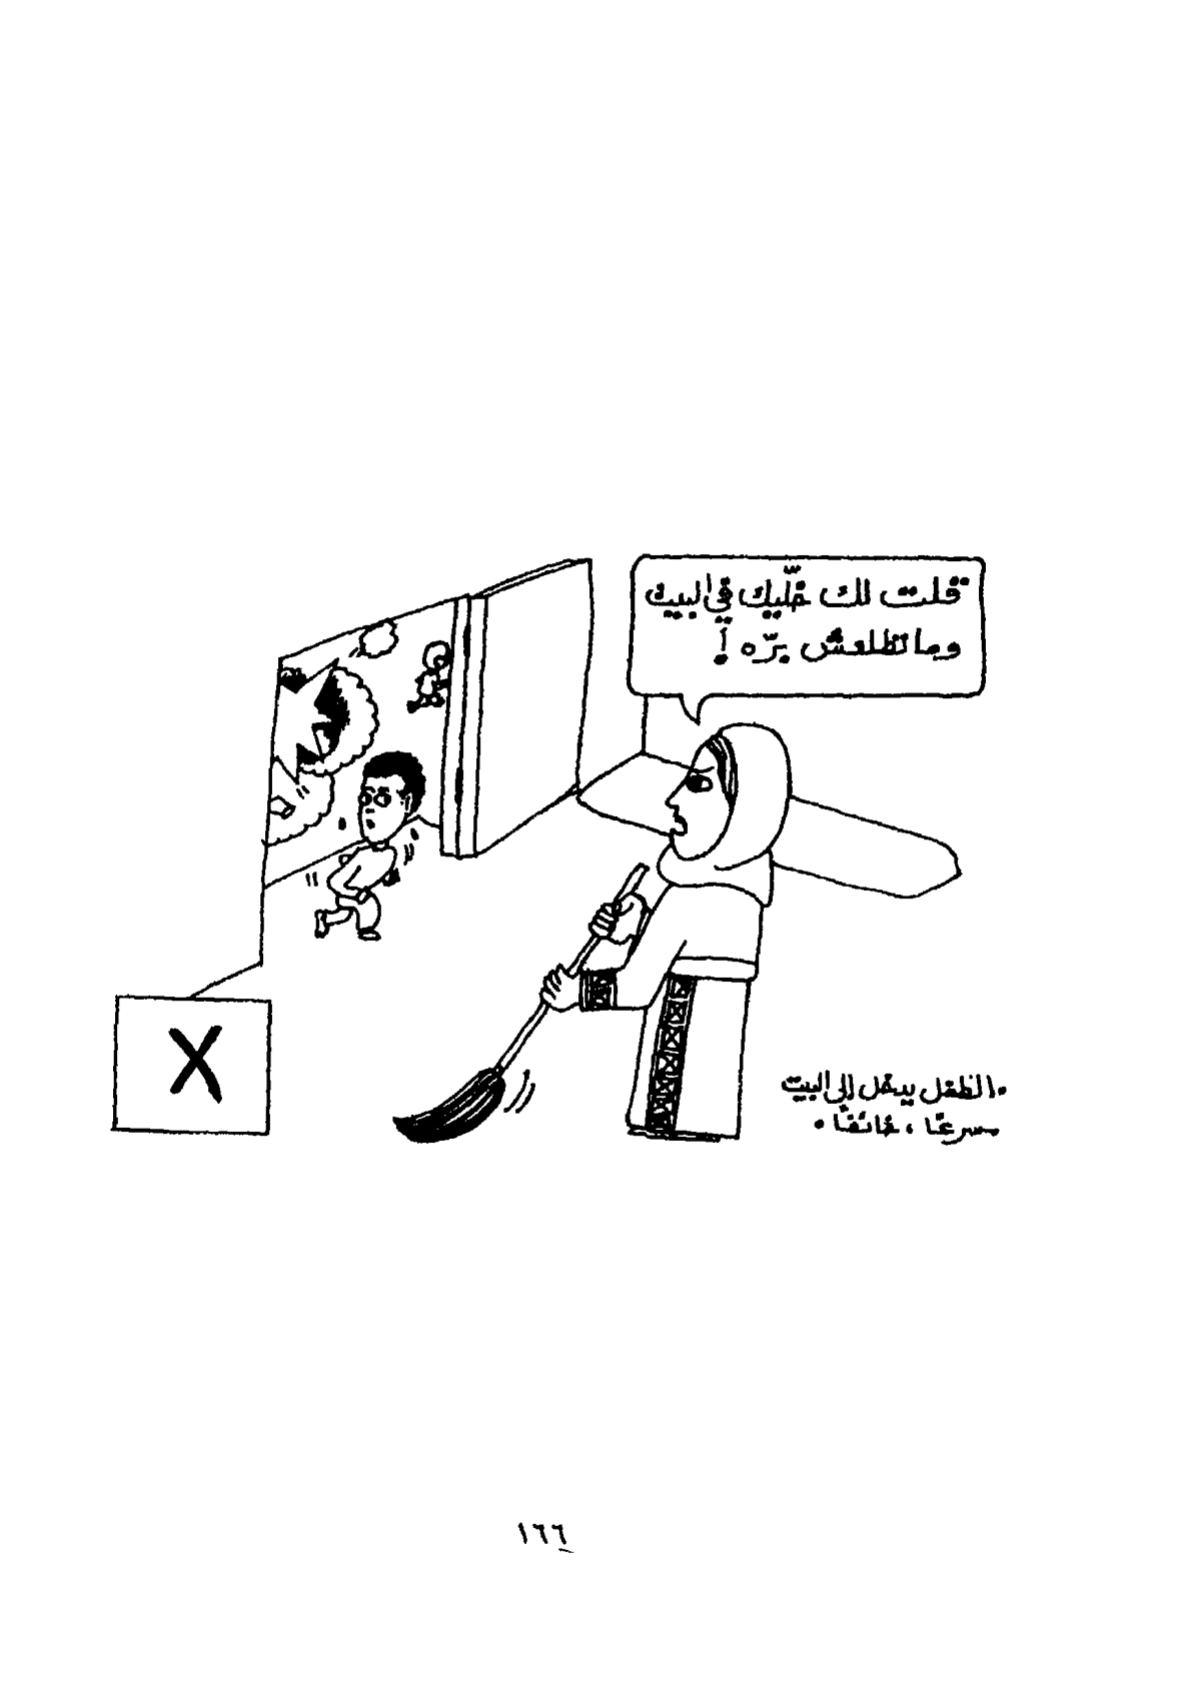 قلت لك خلّيك في البيت
وما تطلعش برّه !
X
• الطفل يدخل إلى البيت
مسرعًا ، خائفًا .
١٦٦